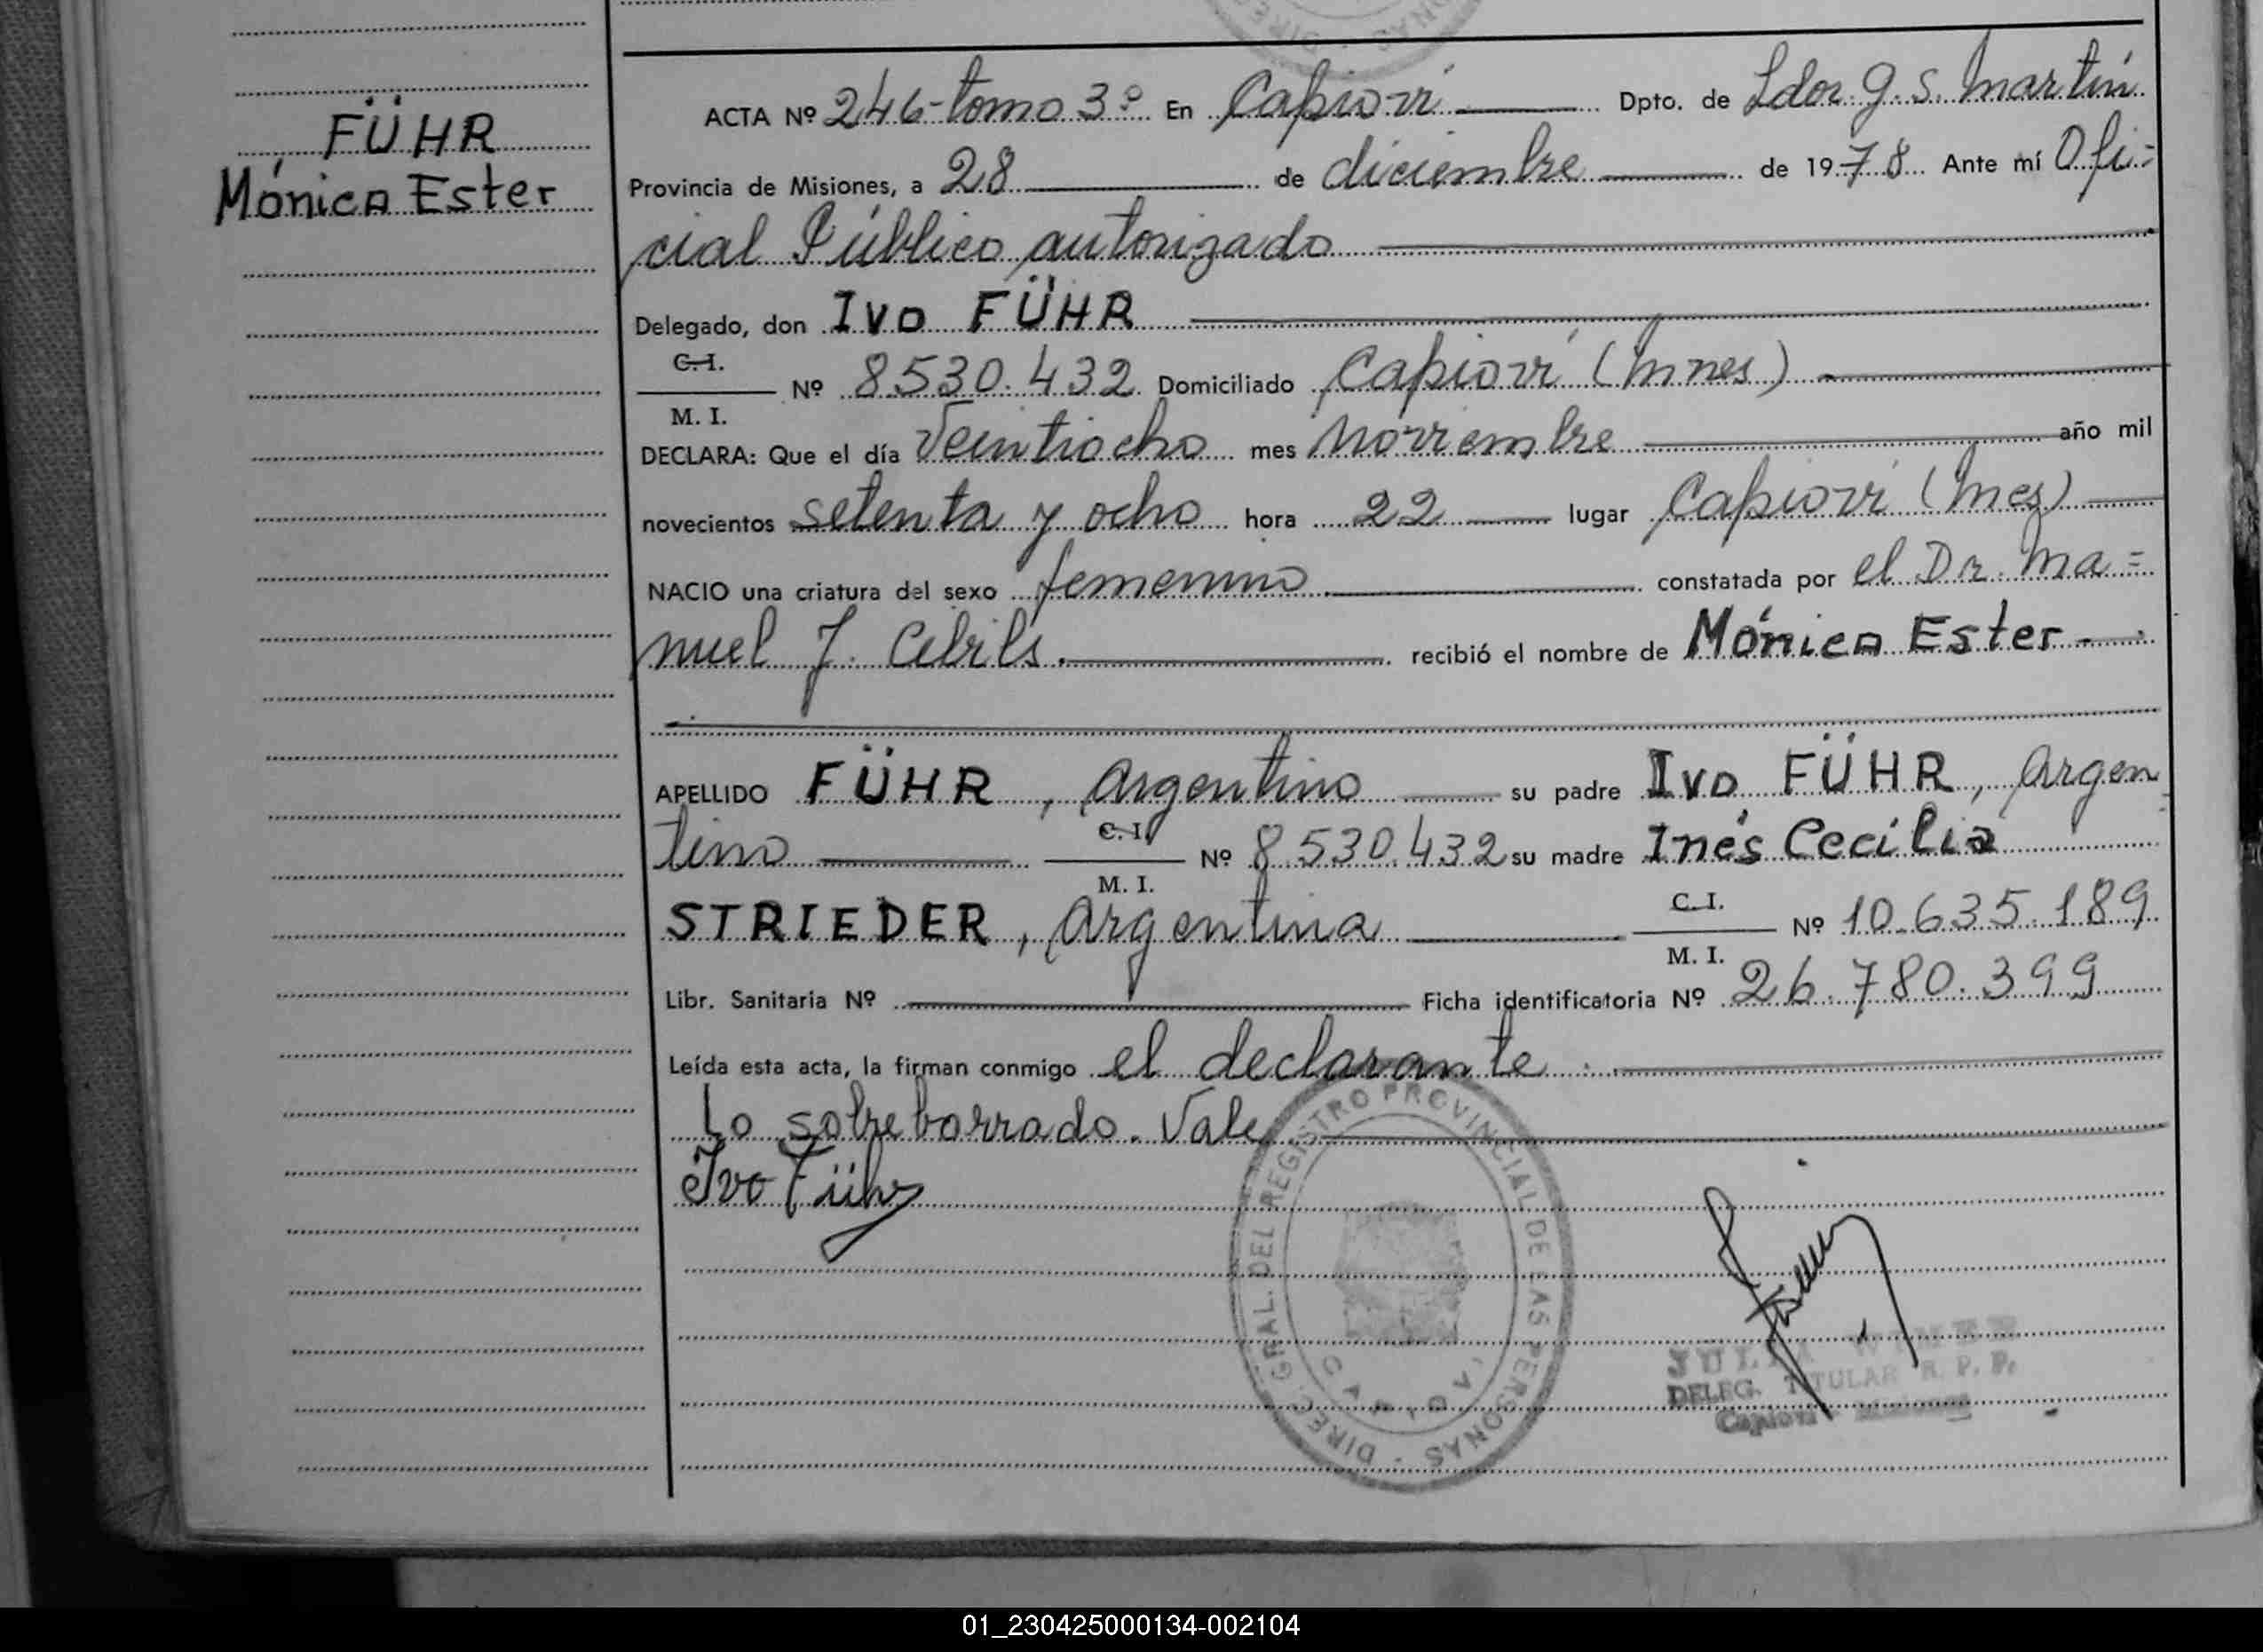 FÜHR
Mónica Ester
ACTA Nº 246-tomo 3º En Capioví Dpto. de Ldor. G. S. Martín
Provincia de Misiones, a 28 de diciembre de 1978 Ante mí Ofi-
cial Público autorizado
Delegado, don IVO FÜHR
C.I.
M. I. Nº 8530.432 Domiciliado Capioví (Mnes)
DECLARA: Que el día Veintiocho mes Noviembre año mil
novecientos setenta y ocho hora 22 lugar Capioví (Mnes)
NACIO una criatura del sexo femenino constatada por el Dr. Ma=
nuel J. Cebrils. recibió el nombre de Mónica Ester
APELLIDO FÜHR, argentino su padre Ivo FÜHR, argen
tino C.I. M. I. Nº 8.530.432 su madre Inés Cecilia
STRIEDER, argentina C.I. M. I. Nº 10.635.189
Libr. Sanitaria Nº Ficha identificatoria Nº 26.780.399
Leída esta acta, la firman conmigo el declarante.
Lo sobreborrado. Vale
Ivo Führ
DIREC. GRAL. DEL REGISTRO PROVINCIAL DE LAS PERSONAS
CAPIOVI
DELEG. TITULAR R. P. P.
Capiovi - Misiones
01_230425000134-002104